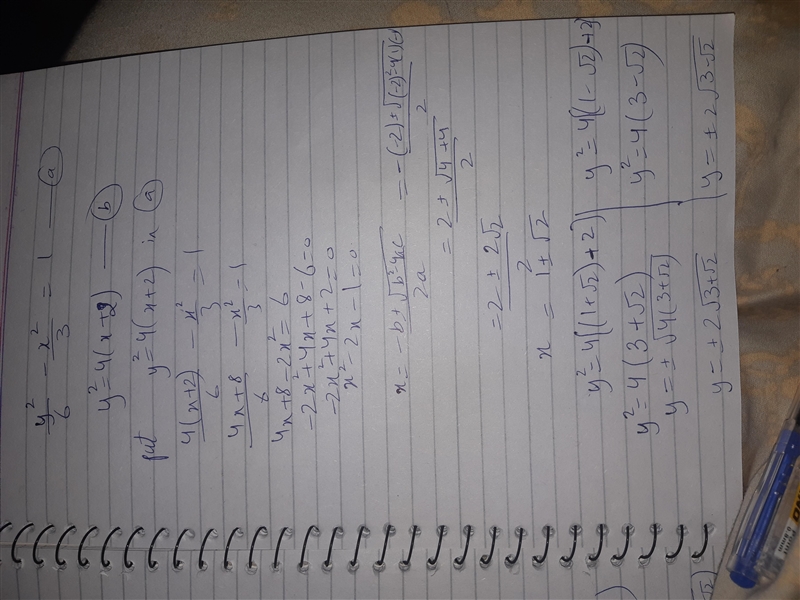 y²/6 - x²/3 = 1 —— (a)
y² = 4(x+2) —— (b)
put y² = 4(x+2) in (a)
4(x+2)/6 - x²/3 = 1
4x+8/6 - x²/3 = 1
4x+8-2x² = 6
-2x²+4x+8-6=0
-2x²+4x+2=0
x²-2x-1=0
x = -b±√b²-4ac/2a = -(-2)±√(-2)²-4(1)(-1)/2
= 2±√4+4/2
= 2±2√2/2
x = 1±√2
y² = 4[(1+√2)+2]
y² = 4(3+√2)
y = ±√4(3+√2)
y = ±2√3+√2
y² = 4[(1-√2)+2]
y² = 4(3-√2)
y = ±2√3-√2